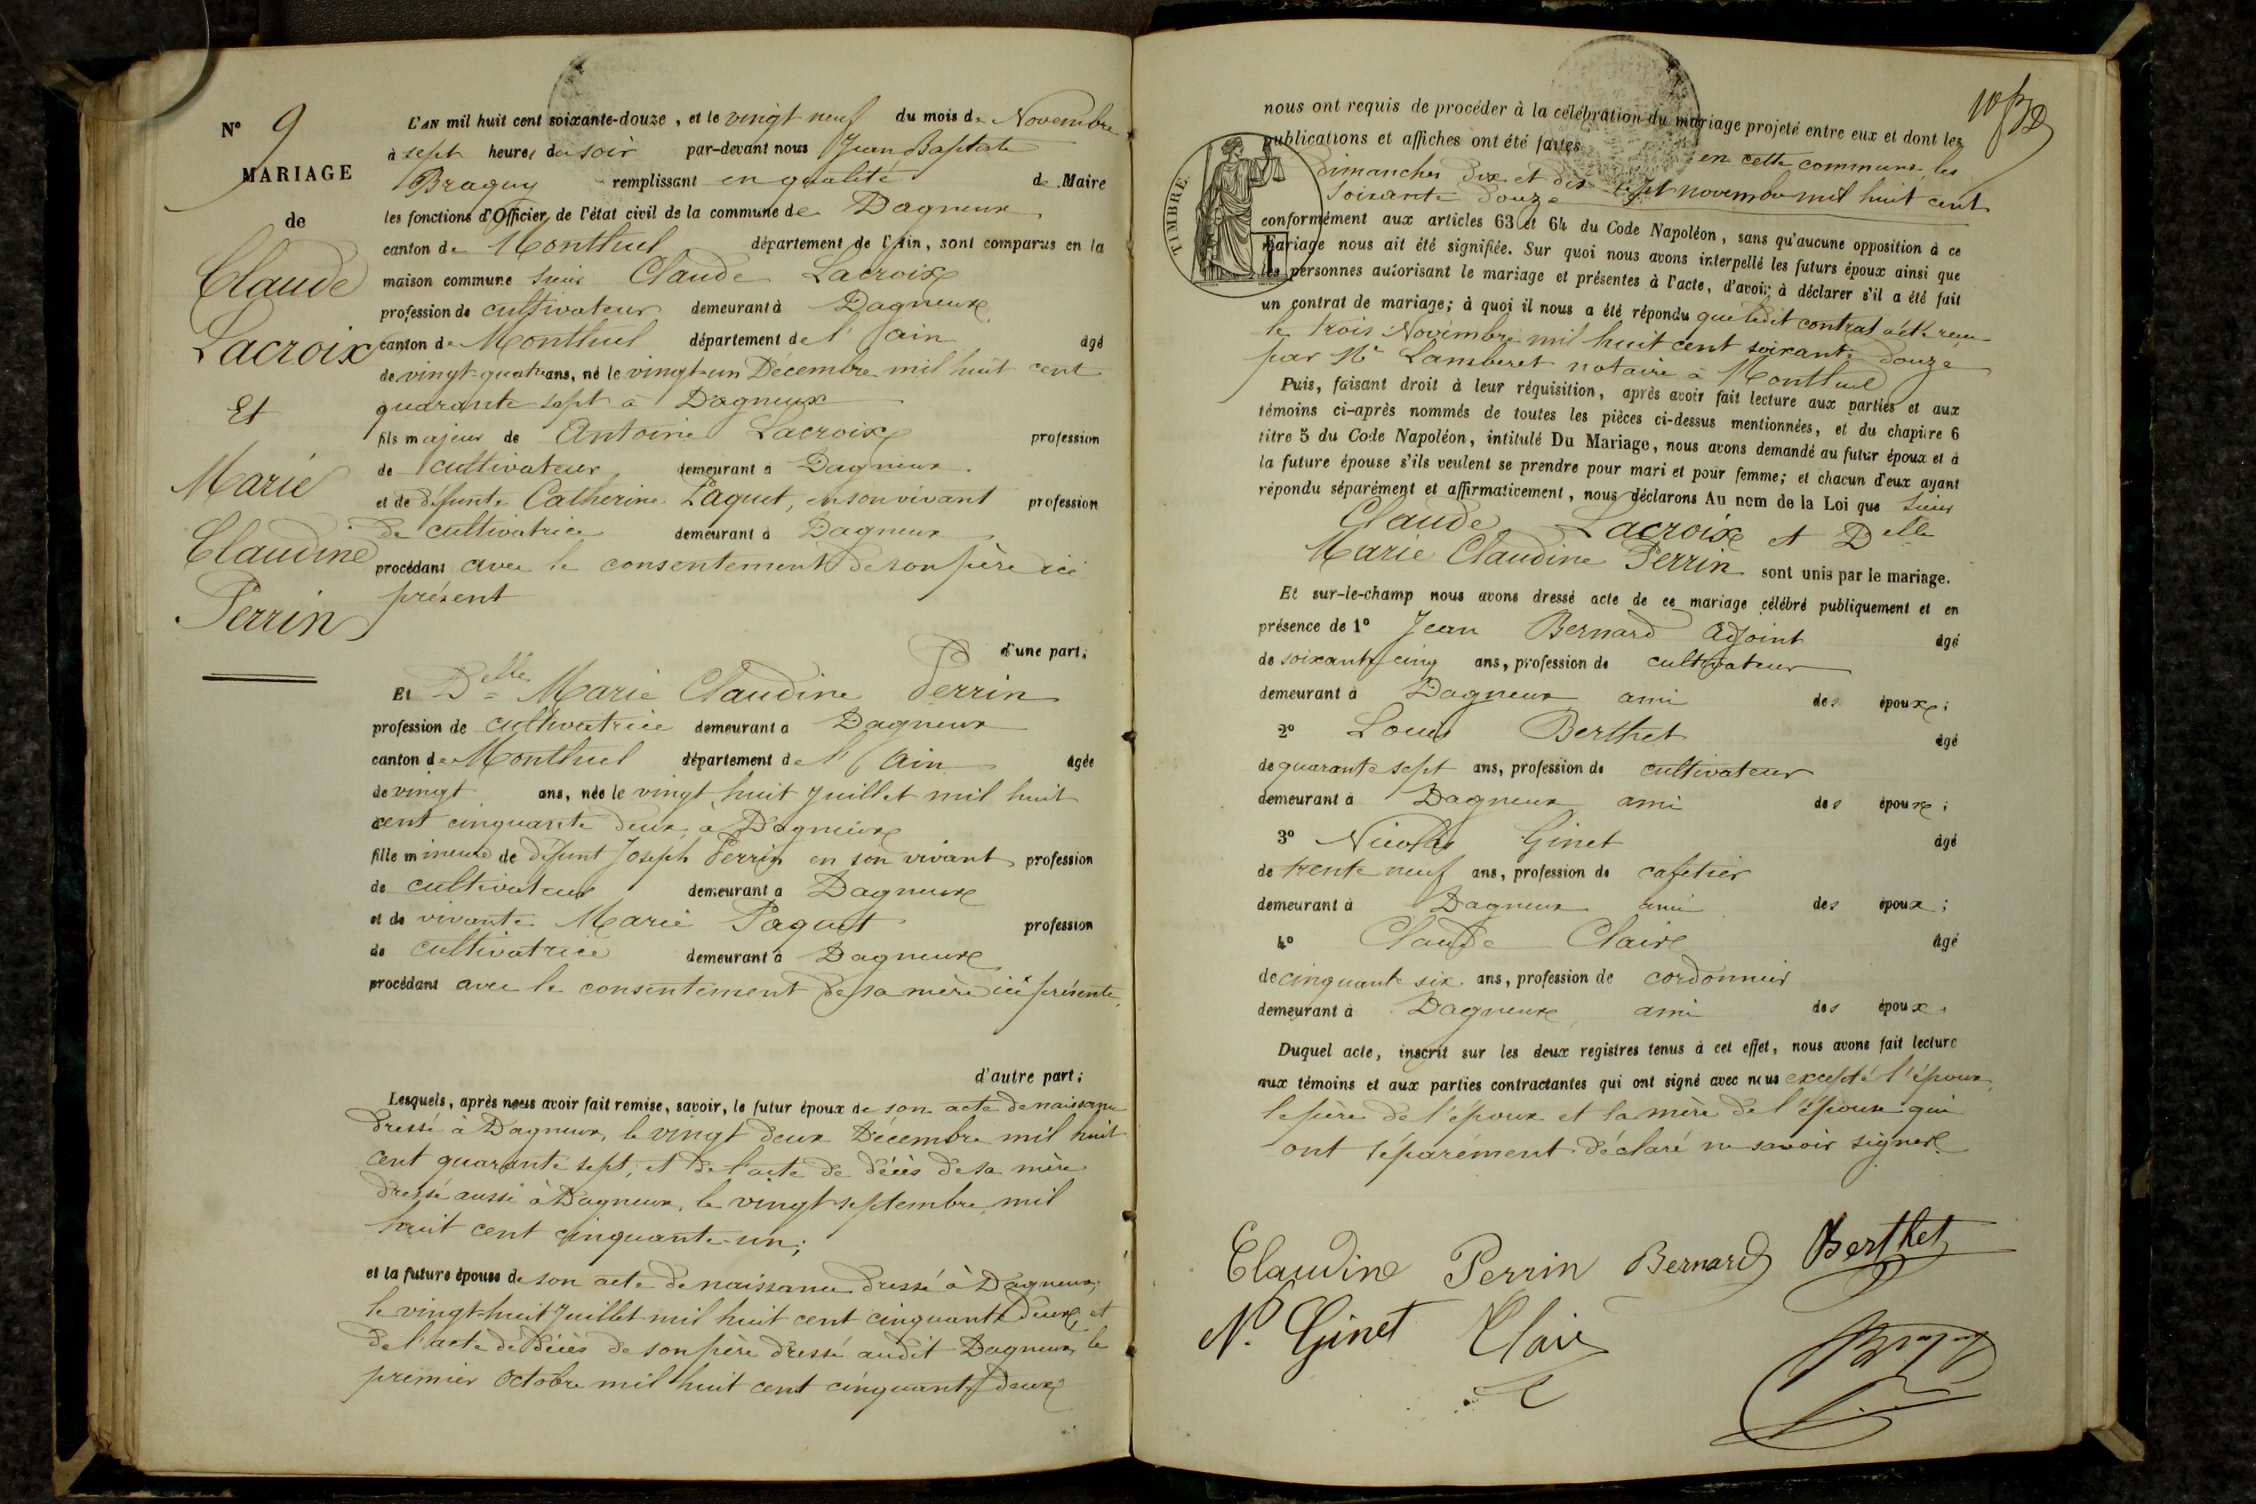 N° 9
MARIAGE
de
Claude
Lacroix
Et
Marie
Claudine
Perrin
L'AN mil huit cent soixante-douze, et le vingt neuf du mois de Novembre
à sept heures du soir par-devant nous Jean Baptiste
Braguy remplissant en qualité de Maire
les fonctions d'Officier de l'état civil de la commune de Dagneux
canton de Montluel département de l'Ain, sont comparus en la
maison commune sieur Claude Lacroix
profession de cultivateur demeurant à Dagneux
canton de Montluel département de l'ain âgé
de vingt-quatre ans, né le vingt-un Décembre mil huit cent
quarante sept à Dagneux
fils majeur de Antoine Lacroix profession
de cultivateur demeurant à Dagneux
et de défunte Catherine Paquet, en son vivant profession
de cultivatrice demeurant à Dagneux
procédant avec le consentement de son père ici
présent
d'une part;
Et Delle Marie Claudine Perrin
profession de cultivatrice demeurant à Dagneux
canton de Montluel département de l'ain âgée
de vingt ans, née le vingt huit Juillet mil huit
cent cinquante deux à Dagneux
fille mineure de défunt Joseph Perrin en son vivant profession
de cultivateur demeurant à Dagneux
et de vivante Marie Paquet profession
de cultivatrice demeurant à Dagneux
procédant avec le consentement de sa mère ici présente,
d'autre part;
Lesquels, après nous avoir fait remise, savoir, le futur époux de son acte de naissance
dressé à Dagneux, le vingt deux Décembre mil huit
cent quarante sept, et de l'acte de décès de sa mère
dressé aussi à Dagneux, le vingt septembre mil
huit cent cinquante-un;
et la future épouse de son acte de naissance dressé à Dagneux,
le vingt-huit Juillet mil huit cent cinquante deux, et
de l'acte de décès de son père dressé audit Dagneux, le
premier Octobre mil huit cent cinquante deux
nous ont requis de procéder à la célébration du mariage projeté entre eux et dont les
publications et affiches ont été faites en cette commune les
dimanches dix et dix sept novembre mil huit cent
soixante douze
conformément aux articles 63 et 64 du Code Napoléon, sans qu'aucune opposition à ce
mariage nous ait été signifiée. Sur quoi nous avons interpellé les futurs époux ainsi que
les personnes autorisant le mariage et présentes à l'acte, d'avoir à déclarer s'il a été fait
un contrat de mariage; à quoi il nous a été répondu que ledit contrat a été reçu
le trois Novembre mil huit cent soixante douze
par Me Lamberet notaire à Montluel
TIMBRE
Puis, faisant droit à leur réquisition, après avoir fait lecture aux parties et aux
témoins ci-après nommés de toutes les pièces ci-dessus mentionnées, et du chapitre 6
titre 5 du Code Napoléon, intitulé Du Mariage, nous avons demandé au futur époux et à
la future épouse s'ils veulent se prendre pour mari et pour femme; et chacun d'eux ayant
répondu séparément et affirmativement, nous déclarons Au nom de la Loi que sieur
Claude Lacroix et Delle
Marie Claudine Perrin sont unis par le mariage.
Et sur-le-champ nous avons dressé acte de ce mariage célébré publiquement et en
présence de 1° Jean Bernard adjoint âgé
de soixante cinq ans, profession de cultivateur
demeurant à Dagneux ami des époux;
2° Louis Berthet âgé
de quarante sept ans, profession de cultivateur
demeurant à Dagneux ami des époux;
3° Nicolas Ginet âgé
de trente neuf ans, profession de cafetier
demeurant à Dagneux ami des époux;
4° Claude Claire âgé
de cinquante six ans, profession de cordonnier
demeurant à Dagneux, ami des époux.
Duquel acte, inscrit sur les deux registres tenus à cet effet, nous avons fait lecture
aux témoins et aux parties contractantes qui ont signé avec nous excepté l'époux,
le père de l'époux et la mère de l'épouse qui
ont séparément déclaré ne savoir signer
Claudine Perrin Bernard Berthet
N. Ginet Clair